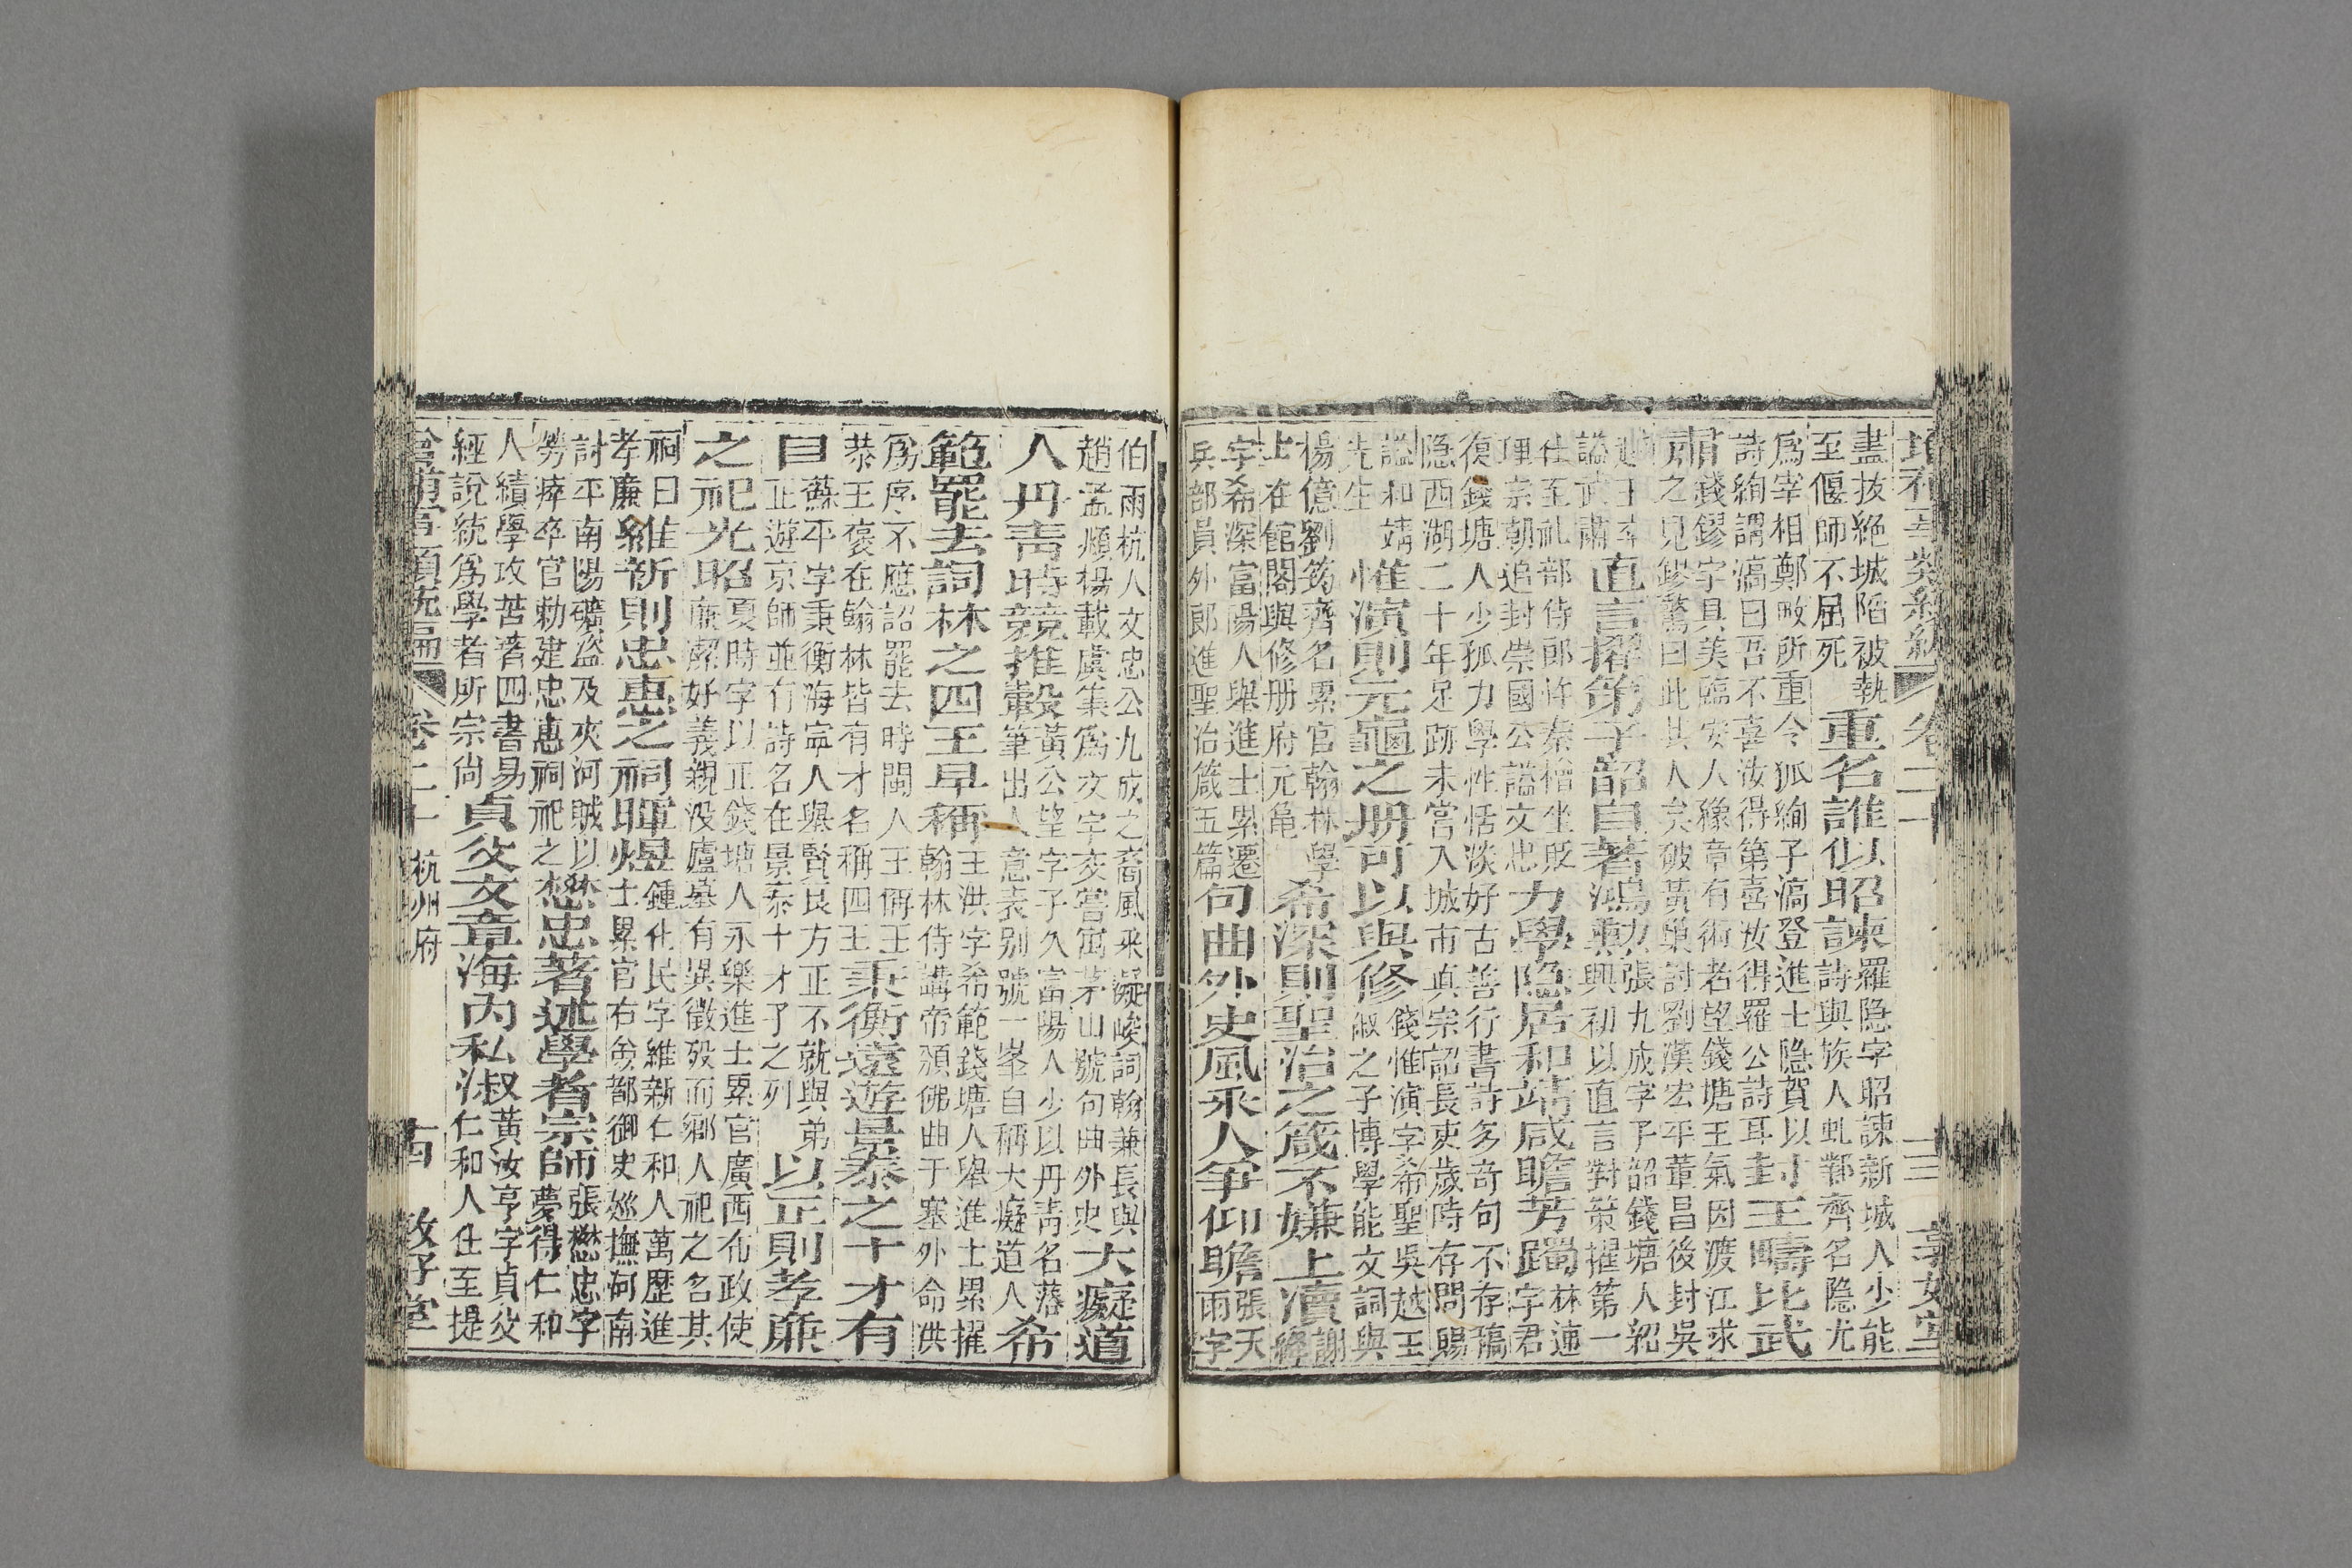 卷二十
盡拔絕城陷被執
至偃師不屈死
重名誰似昭諫
羅隐字昭諫新城人少能
詩與族人虬鄴齊名隐尤
爲宰相鄭畋所重令狐綯子滈登進士隐賀以
詩綯謂滈曰吾不喜汝得第喜汝得羅公詩耳
封王疇比武
肅
錢鏐字具美臨安人豫章有術者望錢塘王氣因渡江求
之見鏐驚曰此其人矣破黃巢討劉漢宏平董昌後封吳
越王卒
謚武肅
直言擢第子韶自著鴻勳
張九成字子韶錢塘人紹
興初以直言對策擢第一
仕至礼部侍郎忤秦檜坐貶
理宗朝追封崇國公謚文忠
力學隐居和靖咸瞻芳躅
林逋
字君
復錢塘人少孤力學性恬淡好古善行書詩多奇句不存稿
隐西湖二十年足跡未嘗入城市真宗詔長吏歲時存問賜
謚和靖
先生
惟演則元龜之册可以與修
錢惟演字希聖吳越王
俶之子博學能文詞與
楊億劉筠齊名累官翰林學
士在館閣與修册府元龜
希深則聖治之箴不嫌上瀆
謝
絳
字希深富陽人舉進士累遷
兵部員外郎進聖治箴五篇
句曲外史風采人爭仰瞻
張天
雨字
伯雨杭人文忠公九成之裔風采凝峻詞翰兼長與
趙孟頫楊載虞集爲文字交嘗寓茅山號句曲外史
大癡道
人丹靑時競推轂
黃公望字子久富陽人少以丹靑名落
筆出人意表别號一峯自稱大癡道人
希
範罷去詞林之四王早稱
王洪字希範錢塘人舉進士累擢
翰林侍講帝頒佛曲于塞外命洪
爲序不應詔罷去時閩人王偁王
恭王褒在翰林皆有才名稱四王
秉衡遠遊景泰之十才有
目
蘇平字秉衡海寧人與賢良方正不就與弟
正遊京師並有詩名在景泰十才子之列
以正則孝亷
之祀光昭
夏時字以正錢塘人永樂進士累官廣西布政使
亷潔好義親没廬墓有異徵殁而鄉人祀之名其
祠曰
孝廉
維新則忠惠之祠暉煜
鍾化民字維新仁和人萬歷進
士累官右僉都御史廵撫河南
討平南陽礦盗及夾河賊以
勞瘁卒官勅建忠惠祠祀之
懋忠著述學者宗師
張懋忠字
夢得仁和
人績學攻苦著四書易
經說統爲學者所宗尙
貞父文章海内私淑
黃汝亨字貞父
仁和人仕至提
卷二十 杭州府